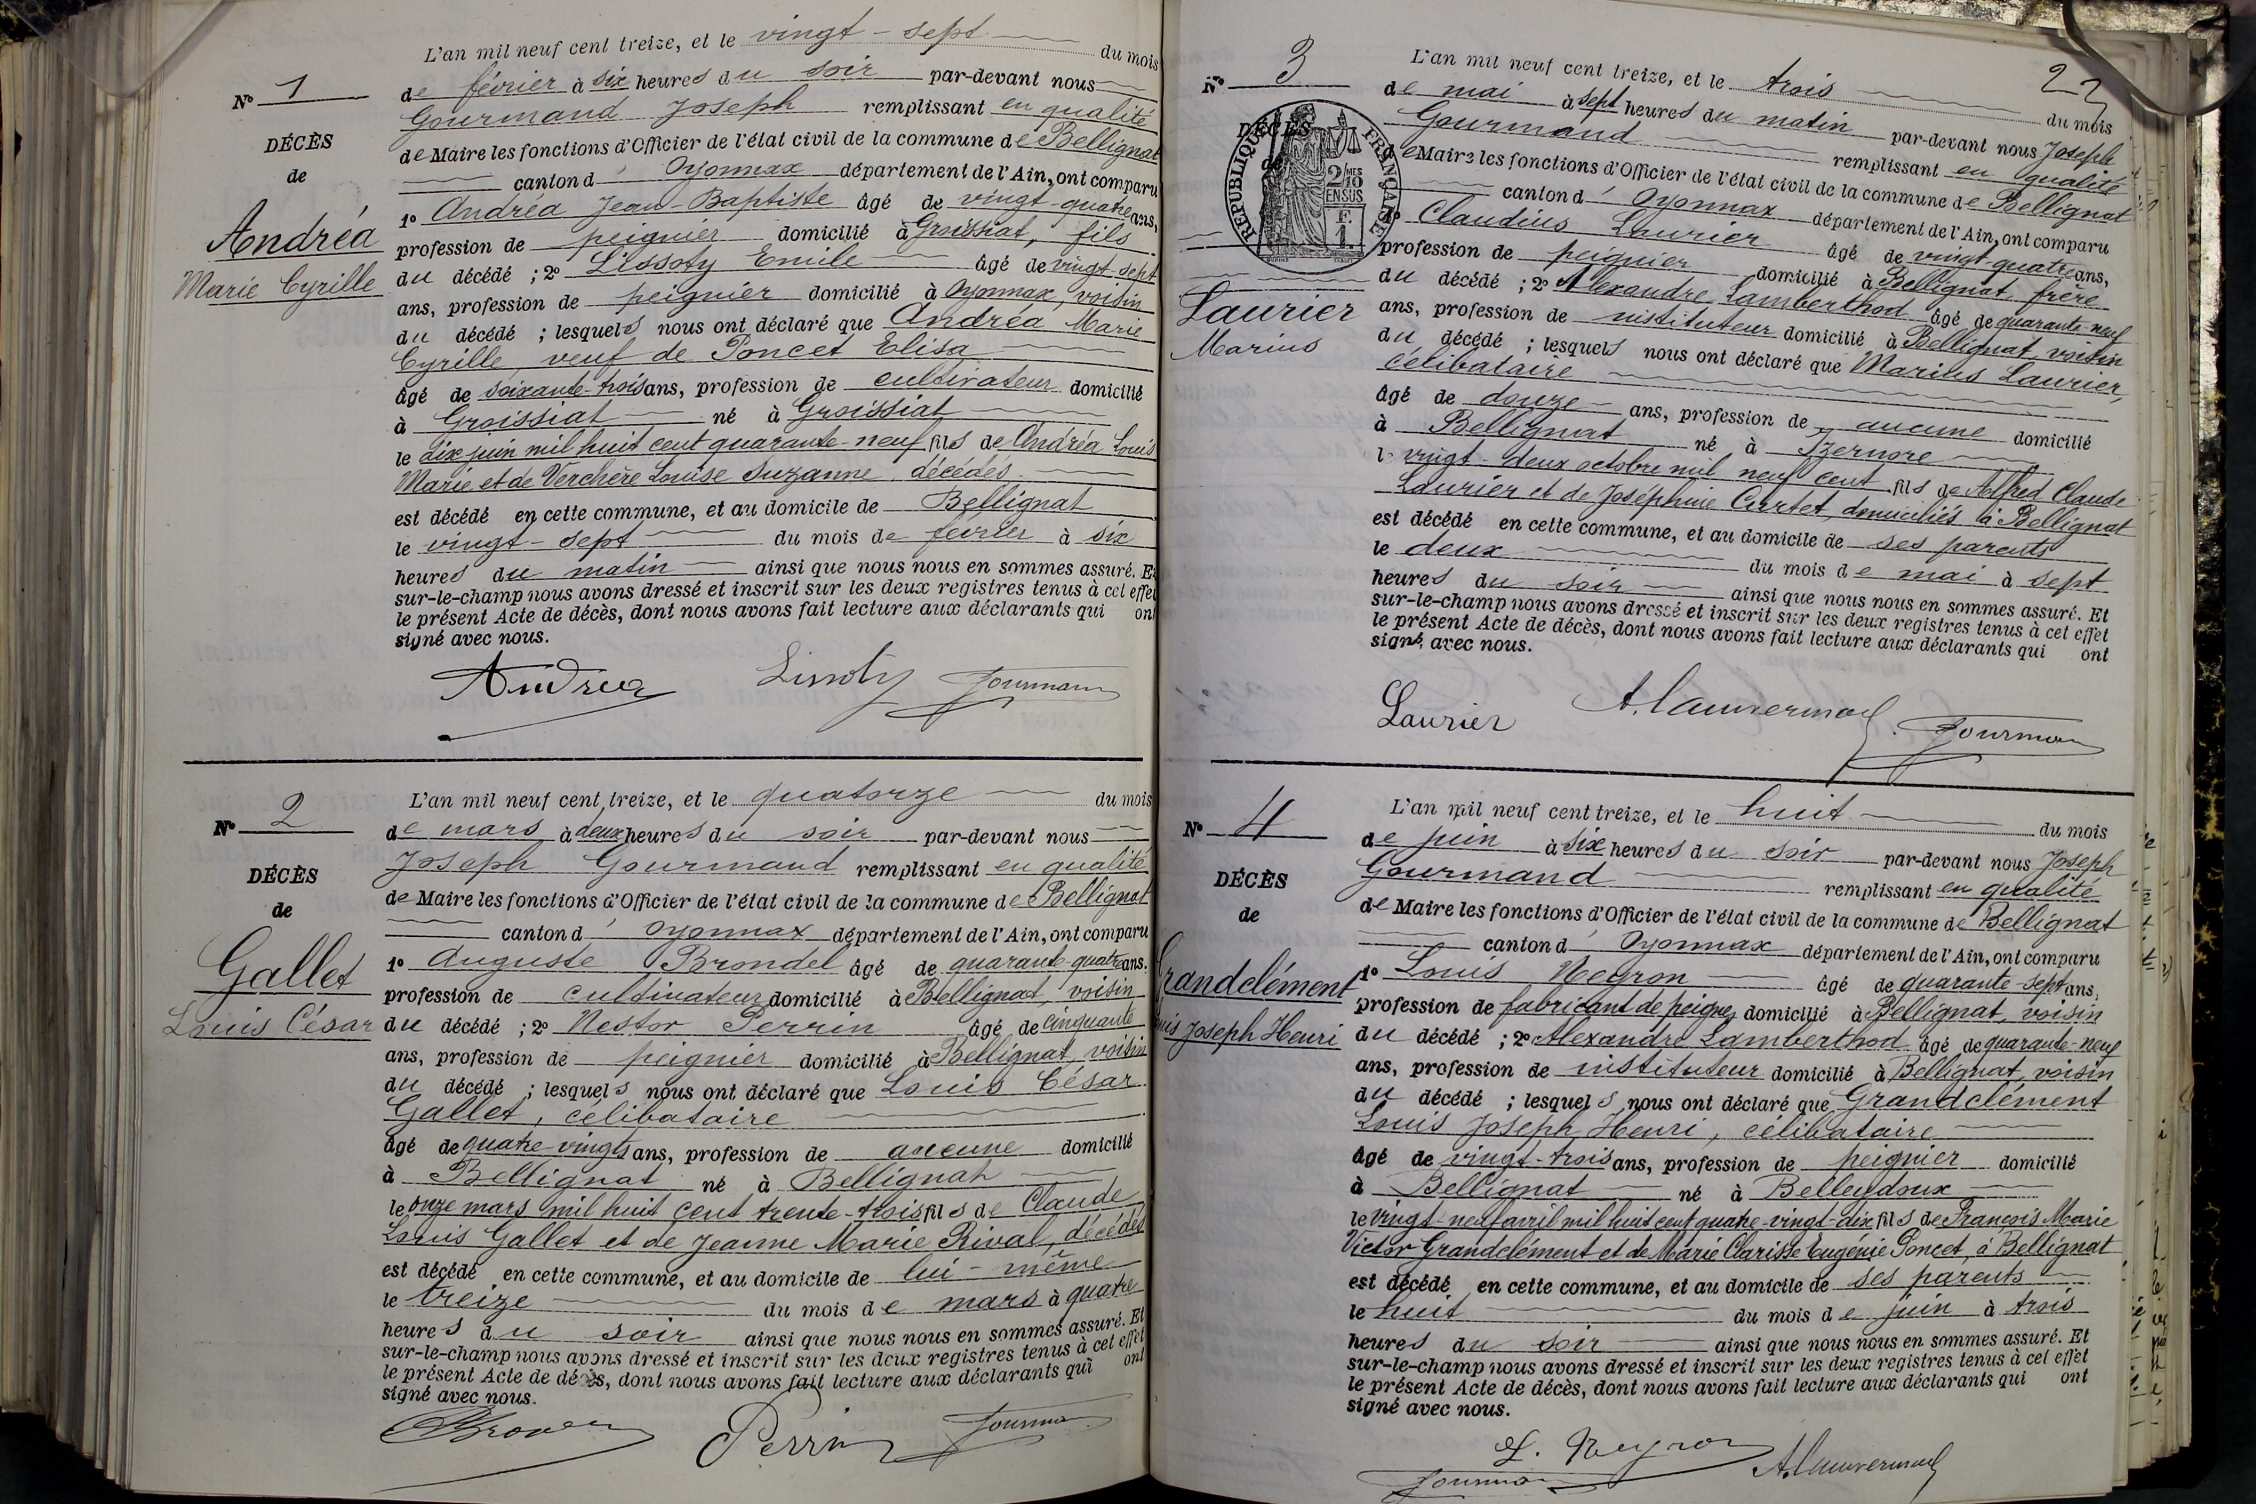 L'an mil neuf cent treize, et le vingt-sept du mois
N° 1
de février à six heures du soir par-devant nous
Gourmand Joseph remplissant en qualité
DÉCÈS
de Maire les fonctions d'Officier de l'état civil de la commune de Bellignat
de
canton d'Oyonnax département de l'Ain, ont comparu
1° Andréa Jean-Baptiste âgé de vingt-quatre ans,
Andréa
profession de peignier domicilié à Groissiat, fils
Marie Cyrille
du décédé ; 2° Lissoty Emile âgé de vingt-sept
ans, profession de peignier domicilié à Oyonnax, voisin
du décédé ; lesquels nous ont déclaré que Andréa Marie
Cyrille, veuf de Poncet Elisa
âgé de soixante-trois ans, profession de cultivateur domicilié
à Groissiat né à Groissiat
le dix juin mil huit cent quarante-neuf fils de Andréa Louis
Marie et de Verchère Louise Suzanne, décédés
est décédé en cette commune, et au domicile de Bellignat
le vingt-sept du mois de février à six
heures du matin ainsi que nous nous en sommes assuré. Et
sur-le-champ nous avons dressé et inscrit sur les deux registres tenus à cet effet
le présent Acte de décès, dont nous avons fait lecture aux déclarants qui ont
signé avec nous.
Andréa Lissoty Gourmand
L'an mil neuf cent treize, et le quatorze du mois
N° 2
de mars à deux heures du soir par-devant nous
Joseph Gourmand remplissant en qualité
DÉCÈS
de Maire les fonctions d'Officier de l'état civil de la commune de Bellignat
de
canton d'Oyonnax département de l'Ain, ont comparu
1° Auguste Brondel âgé de quarante-quatre ans.
Gallet
profession de cultivateur domicilié à Bellignat, voisin
Louis César
du décédé ; 2° Nestor Perrin âgé de cinquante
ans, profession de peignier domicilié à Bellignat, voisin
du décédé ; lesquels nous ont déclaré que Louis César
Gallet, célibataire
âgé de quatre-vingts ans, profession de aucune domicilié
à Bellignat né à Bellignat
le onze mars mil huit cent trente-trois fils de Claude
Louis Gallet et de Jeanne Marie Rival, décédés
est décédé en cette commune, et au domicile de lui-même
le treize du mois de mars à quatre
heures du soir ainsi que nous nous en sommes assuré. Et
sur-le-champ nous avons dressé et inscrit sur les deux registres tenus à cet effet
le présent Acte de décès, dont nous avons fait lecture aux déclarants qui ont
signé avec nous.
Perrin Gourmand
23
L'an mil neuf cent treize, et le trois du mois
N° 3
de mai à sept heures du matin par-devant nous Joseph
Gourmand remplissant en qualité
DÉCÈS
de Maire les fonctions d'Officier de l'état civil de la commune de Bellignat
de
RÉPUBLIQUE FRANÇAISE
2/10 MES
EN SUS
F. 1.
canton d'Oyonnax département de l'Ain, ont comparu
1° Claudius Laurier âgé de vingt-quatre ans,
profession de peignier domicilié à Bellignat, frère
du décédé ; 2° Alexandre Lamberthod âgé de quarante-neuf
Laurier
Marius
ans, profession de instituteur domicilié à Bellignat, voisin
du décédé ; lesquels nous ont déclaré que Marius Laurier,
célibataire
âgé de douze ans, profession de aucune domicilié
à Bellignat né à Izernore
le vingt-deux octobre mil neuf cent fils de Alfred Claude
Laurier et de Joséphine Curtet, domiciliés à Bellignat
est décédé en cette commune, et au domicile de ses parents
le deux du mois de mai à sept
heures du soir ainsi que nous nous en sommes assuré. Et
sur-le-champ nous avons dressé et inscrit sur les deux registres tenus à cet effet
le présent Acte de décès, dont nous avons fait lecture aux déclarants qui ont
signé avec nous.
Laurier Gourmand
L'an mil neuf cent treize, et le huit du mois
N° 4
de juin à six heures du soir par-devant nous Joseph
Gourmand remplissant en qualité
DÉCÈS
de Maire les fonctions d'Officier de l'état civil de la commune de Bellignat
de
canton d'Oyonnax département de l'Ain, ont comparu
1° Louis Neyron âgé de quarante-sept ans,
Grandclément
profession de fabricant de peignes domicilié à Bellignat, voisin
Joseph Henri
du décédé ; 2° Alexandre Lamberthod âgé de quarante-neuf
ans, profession de instituteur domicilié à Bellignat, voisin
du décédé ; lesquels nous ont déclaré que Grandclément
Louis Joseph Henri, célibataire
âgé de vingt-trois ans, profession de peignier domicilié
à Bellignat né à Belleydoux
le vingt-neuf avril mil huit cent quatre-vingt-dix fils de François Marie
Victor Grandclément et de Marie Clarisse Eugénie Poncet, à Bellignat
est décédé en cette commune, et au domicile de ses parents
le huit du mois de juin à trois
heures du soir ainsi que nous nous en sommes assuré. Et
sur-le-champ nous avons dressé et inscrit sur les deux registres tenus à cet effet
le présent Acte de décès, dont nous avons fait lecture aux déclarants qui ont
signé avec nous.
L. Neyron
Gourmand